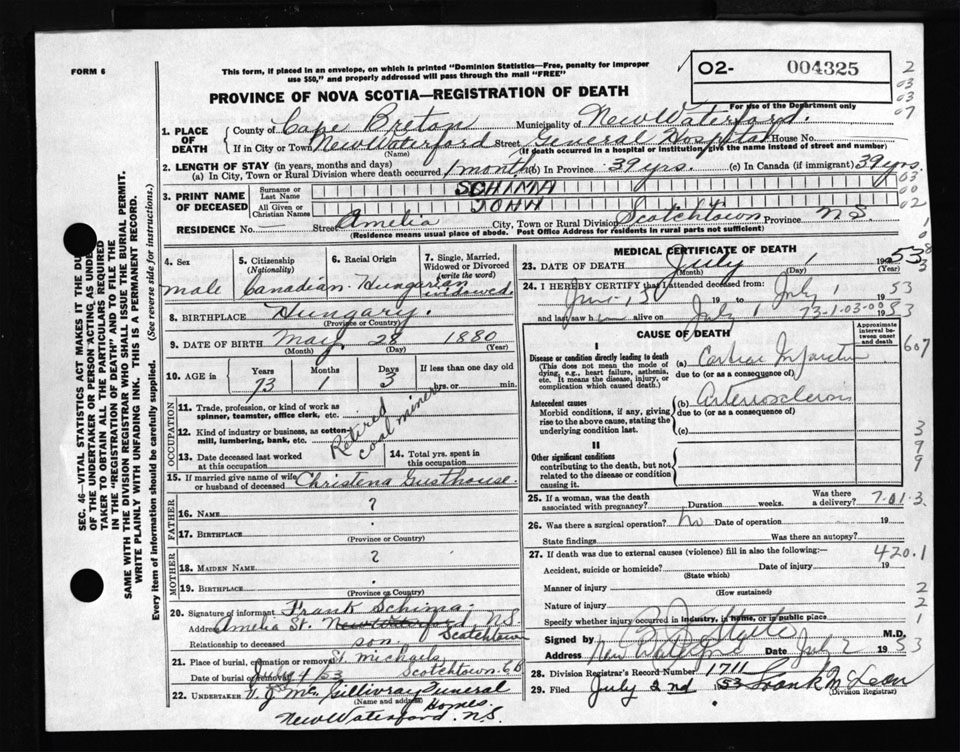 FORM 6
This form, if placed in an envelope, on which is printed "Dominion Statistics—Free, penalty for improper
use $50," and properly addressed will pass through the mail "FREE"
PROVINCE OF NOVA SCOTIA—REGISTRATION OF DEATH
O2- 004325
For use of the Department only
2
03
03
07
1. PLACE OF DEATH
County of Cape Breton Municipality of New Waterford.
If in City or Town New Waterford Street General Hospital House No.
(Name) (If death occurred in a hospital or institution, give the name instead of street and number)
2. LENGTH OF STAY (in years, months and days)
(a) In City, Town or Rural Division where death occurred. 1 month (b) In Province 39 yrs. (c) In Canada (if immigrant) 39 yrs.
03
00
02
3. PRINT NAME OF DECEASED
Surname or Last Name SCHIMA
All Given or Christian Names JOHN
RESIDENCE No. — Street Amelia City, Town or Rural Division Scotchtown Province N.S.
(Residence means usual place of abode. Post Office Address for residents in rural parts not sufficient)
4. Sex
male
5. Citizenship (Nationality)
Canadian
6. Racial Origin
Hungarian
7. Single, Married, Widowed or Divorced (write the word)
widowed.
8. BIRTHPLACE Hungary.
(Province or Country)
9. DATE OF BIRTH May 28 1880
(Month) (Day) (Year)
10. AGE in
Years Months Days If less than one day
73 1 3 hrs. or min.
OCCUPATION
11. Trade, profession, or kind of work as spinner, teamster, office clerk, etc.
12. Kind of industry or business, as cotton-mill, lumbering, bank, etc.
Retired coal miner
13. Date deceased last worked at this occupation
14. Total yrs. spent in this occupation
15. If married give name of wife or husband of deceased Christena Gusthouse.
FATHER
16. NAME ?
17. BIRTHPLACE
(Province or Country)
MOTHER
18. MAIDEN NAME ?
19. BIRTHPLACE
(Province or Country)
20. Signature of informant Frank Schima.
Address Amelia St. New Waterford, N.S. Scotchtown
Relationship to deceased son.
21. Place of burial, cremation or removal St. Michaels Scotchtown C.B.
Date of burial or removal July 4/53
22. UNDERTAKER V.J. Mc Gillivray Funeral Homes.
(Name and address)
New Waterford. N.S.
MEDICAL CERTIFICATE OF DEATH
23. DATE OF DEATH July 1 1953
(Month) (Day) (Year)
24. I HEREBY CERTIFY that I attended deceased from:
June 19 to July 1 1953
and last saw h alive on July 1 1953
73-1-03-00
CAUSE OF DEATH
Approximate interval between onset and death
607
I
Disease or condition directly leading to death
(This does not mean the mode of dying, e.g., heart failure, asthenia, etc. It means the disease, injury, or complication which caused death.)
(a) Cardiac Infarction
due to (or as a consequence of)
Antecedent causes
Morbid conditions, if any, giving rise to the above cause, stating the underlying condition last.
(b) Arteriosclerosis
due to (or as a consequence of)
(c)
II
Other significant conditions
contributing to the death, but not related to the disease or condition causing it.
3
9
9
25. If a woman, was the death associated with pregnancy? Duration weeks. Was there a delivery?
7-01-3
26. Was there a surgical operation? no Date of operation 19
State findings Was there an autopsy?
27. If death was due to external causes (violence) fill in also the following:—
420.1
Accident, suicide or homicide? Date of injury 19
(State which)
Manner of injury 2
(How sustained)
Nature of injury 2
Specify whether injury occurred in industry, in home, or in public place 1
Signed by M.D.
Address New Waterford Date July 2 1953
28. Division Registrar's Record Number 1711
29. Filed July 2nd 1953 Frank McLean
(Division Registrar)
SEC. 46—VITAL STATISTICS ACT MAKES IT THE DU
OF THE UNDERTAKER OR PERSON ACTING AS UNDE
TAKER TO OBTAIN ALL THE PARTICULARS REQUIRED
IN THE "REGISTRATION OF DEATH" AND TO FILE THE
SAME WITH THE DIVISION REGISTRAR WHO SHALL ISSUE THE BURIAL PERMIT.
WRITE PLAINLY WITH UNFADING INK. THIS IS A PERMANENT RECORD.
Every item of information should be carefully supplied. (See reverse side for instructions.)